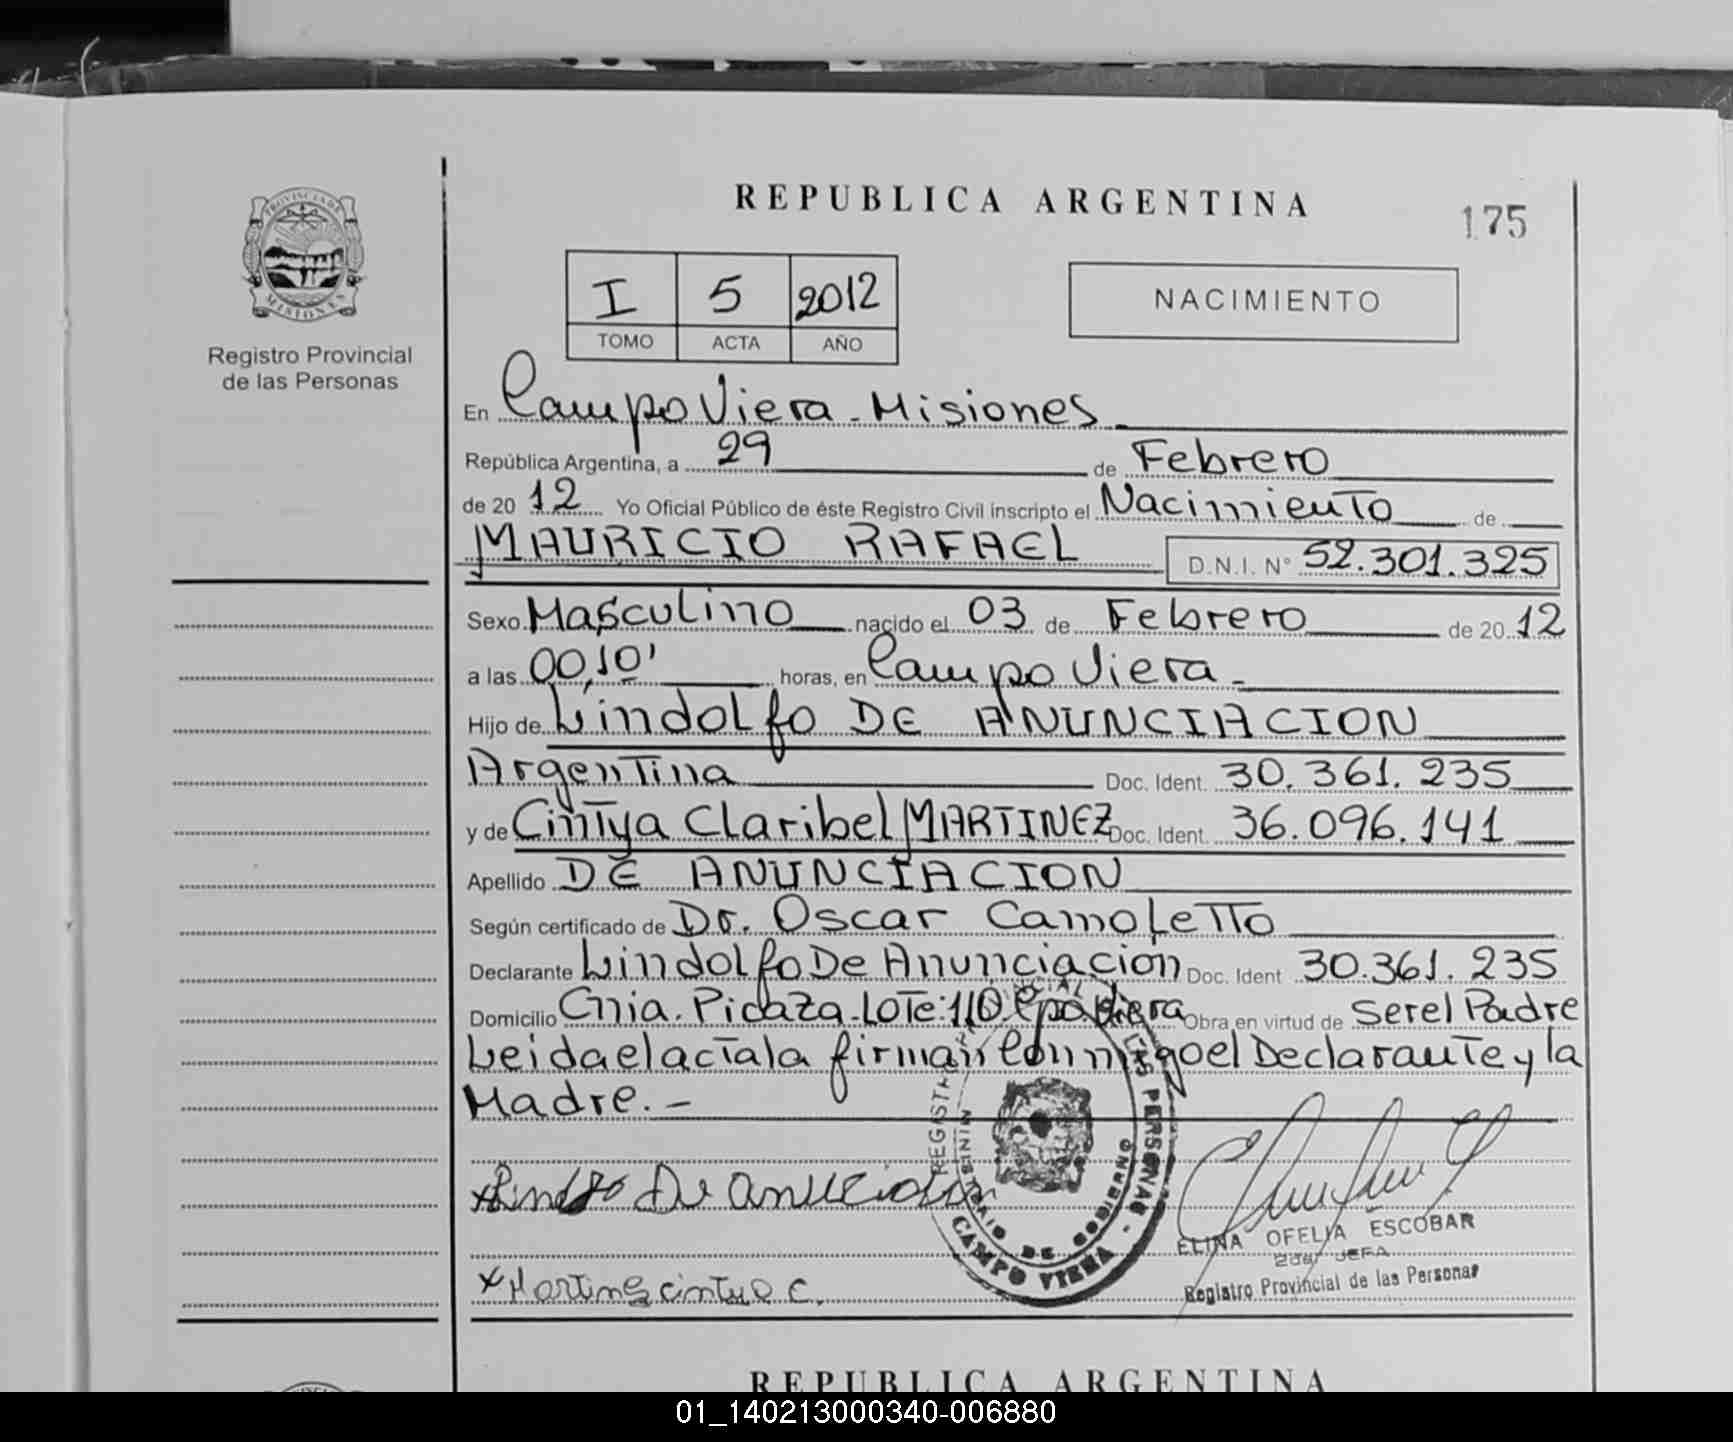 REPUBLICA ARGENTINA
175
PROVINCIA DE
MISIONES
Registro Provincial
de las Personas
I 5 2012
TOMO ACTA AÑO
NACIMIENTO
En Campo Viera - Misiones
República Argentina, a 29 de Febrero
de 20 12 Yo Oficial Público de éste Registro Civil inscripto el Nacimiento de
MAURICIO RAFAEL D.N.I. N° 52.301.325
Sexo Masculino nacido el 03 de Febrero de 20 12
a las 00,10' horas, en Campo Viera -
Hijo de Lindolfo DE ANUNCIACION
Argentina Doc. Ident. 30.361.235
y de Cintya Claribel MARTINEZ Doc. Ident. 36.096.141
Apellido DE ANUNCIACION
Según certificado de Dr. Oscar Camoletto
Declarante Lindolfo De Anunciacion Doc. Ident 30.361.235
Domicilio Cnia. Picaza - Lote: 110 Cpo. Viera Obra en virtud de Ser el Padre
Leida el acta la firman Conmigo el Declarante y la
Madre. -
De anunciacion
x Martinez cintya c.
REGISTRO PROVINCIAL DE LAS PERSONAS -
MINISTERIO DE GOBIERNO
CAMPO VIERA
ELINA OFELIA ESCOBAR
2da. JEFA
Registro Provincial de las Personas
REPUBLICA ARGENTINA
01_140213000340-006880